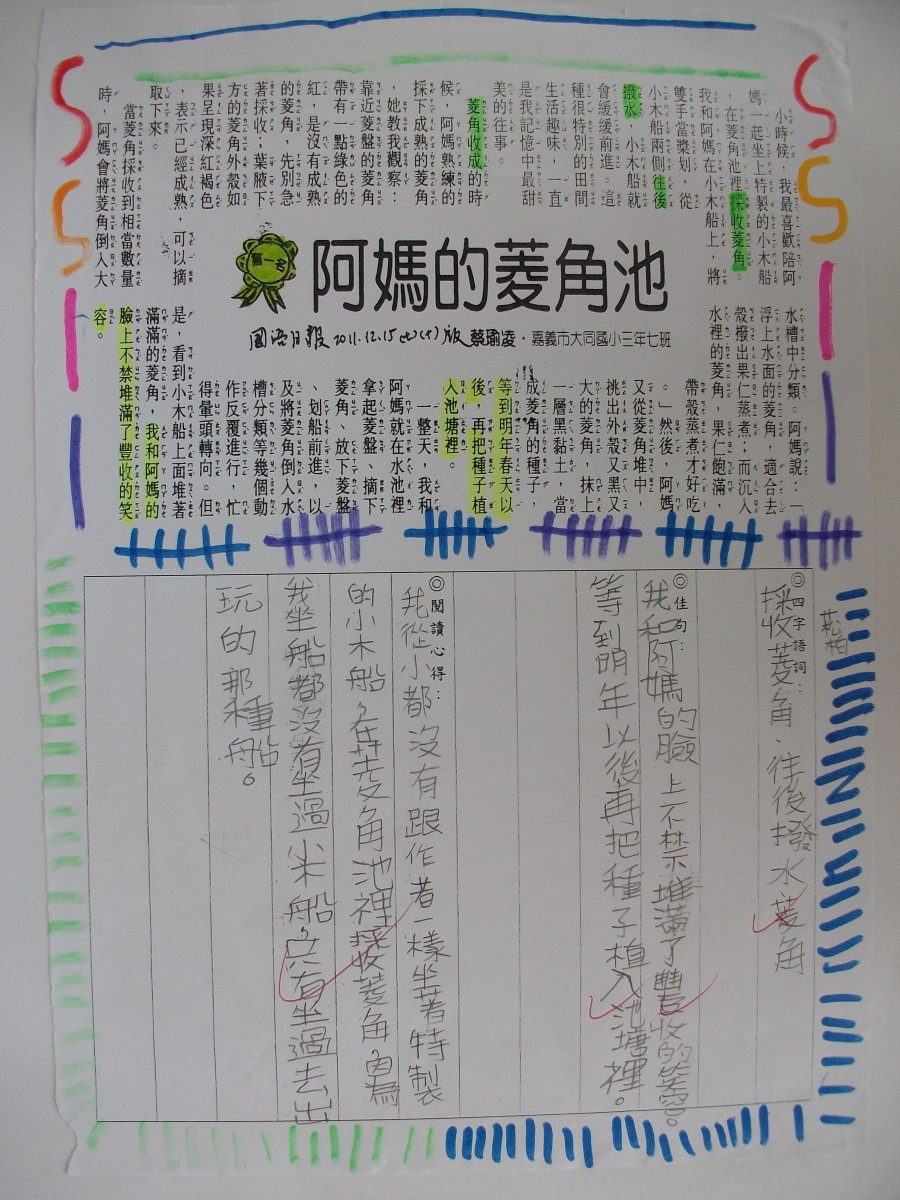 第一名
阿媽的菱角池
國語日報 2011.12.15(七)版 蔡瑜凌・嘉義市大同國小三年七班
小時候，我最喜歡陪阿
媽一起坐上特製的小木船
，在菱角池裡採收菱角。
我和阿媽在小木船上，將
雙手當槳划，從
小木船兩側往後
撥水，小木船就
會緩緩前進。這
種很特別的田間
生活趣味，一直
是我記憶中最甜
美的往事。
菱角收成的時
候，阿媽熟練的
採下成熟的菱角
，她教我觀察：
靠近菱盤的菱角
帶有一點綠色的
紅，是沒有成熟
的菱角，先別急
著採收；葉腋下
方的菱角外殼如
果呈現深紅褐色
，表示已經成熟，可以摘
取下來。
當菱角採收到相當數量
時，阿媽會將菱角倒入大
水槽中分類。阿媽說：「
浮上水面的菱角，適合去
殼撥出果仁蒸煮；而沉入
水裡的菱角，果仁飽滿，
帶殼蒸煮才好吃
。」然後，阿媽
又從菱角堆中，
挑出外殼又黑又
大的菱角，抹上
一層黑黏土，當
成菱角的種子，
等到明年春天以
後，再把種子植
入池塘裡。
一整天，我和
阿媽就在水池裡
拿起菱盤、摘下
菱角、放下菱盤
、划船前進，以
及將菱角倒入水
槽分類等幾個動
作反覆進行，忙
得暈頭轉向。但
是，看到小木船上面堆著
滿滿的菱角，我和阿媽的
臉上不禁堆滿了豐收的笑
容。
菘柏
◎四字語詞：
採收菱角、往後撥水菱角
◎佳句：
我和阿媽的臉上不禁堆滿了豐收的笑容。
等到明年以後再把種子植入池塘裡。
◎閱讀心得：
我從小都沒有跟作者一樣坐著特製
的小木船，在菱角池裡採收菱角因為
我坐船都沒有坐過小米船，只有坐過去出
玩的那種船。